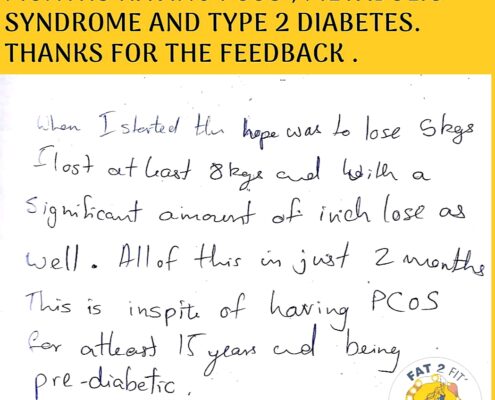 SYNDROME AND TYPE 2 DIABETES.
THANKS FOR THE FEEDBACK .
When I started the hope was to lose 5kgs
I lost at least 8kgs and with a
significant amount of inch lose as
well. All of this in just 2 months
This is inspite of having PCOS
for atleast 15 years and being
pre-diabetic.
FAT 2 FIT